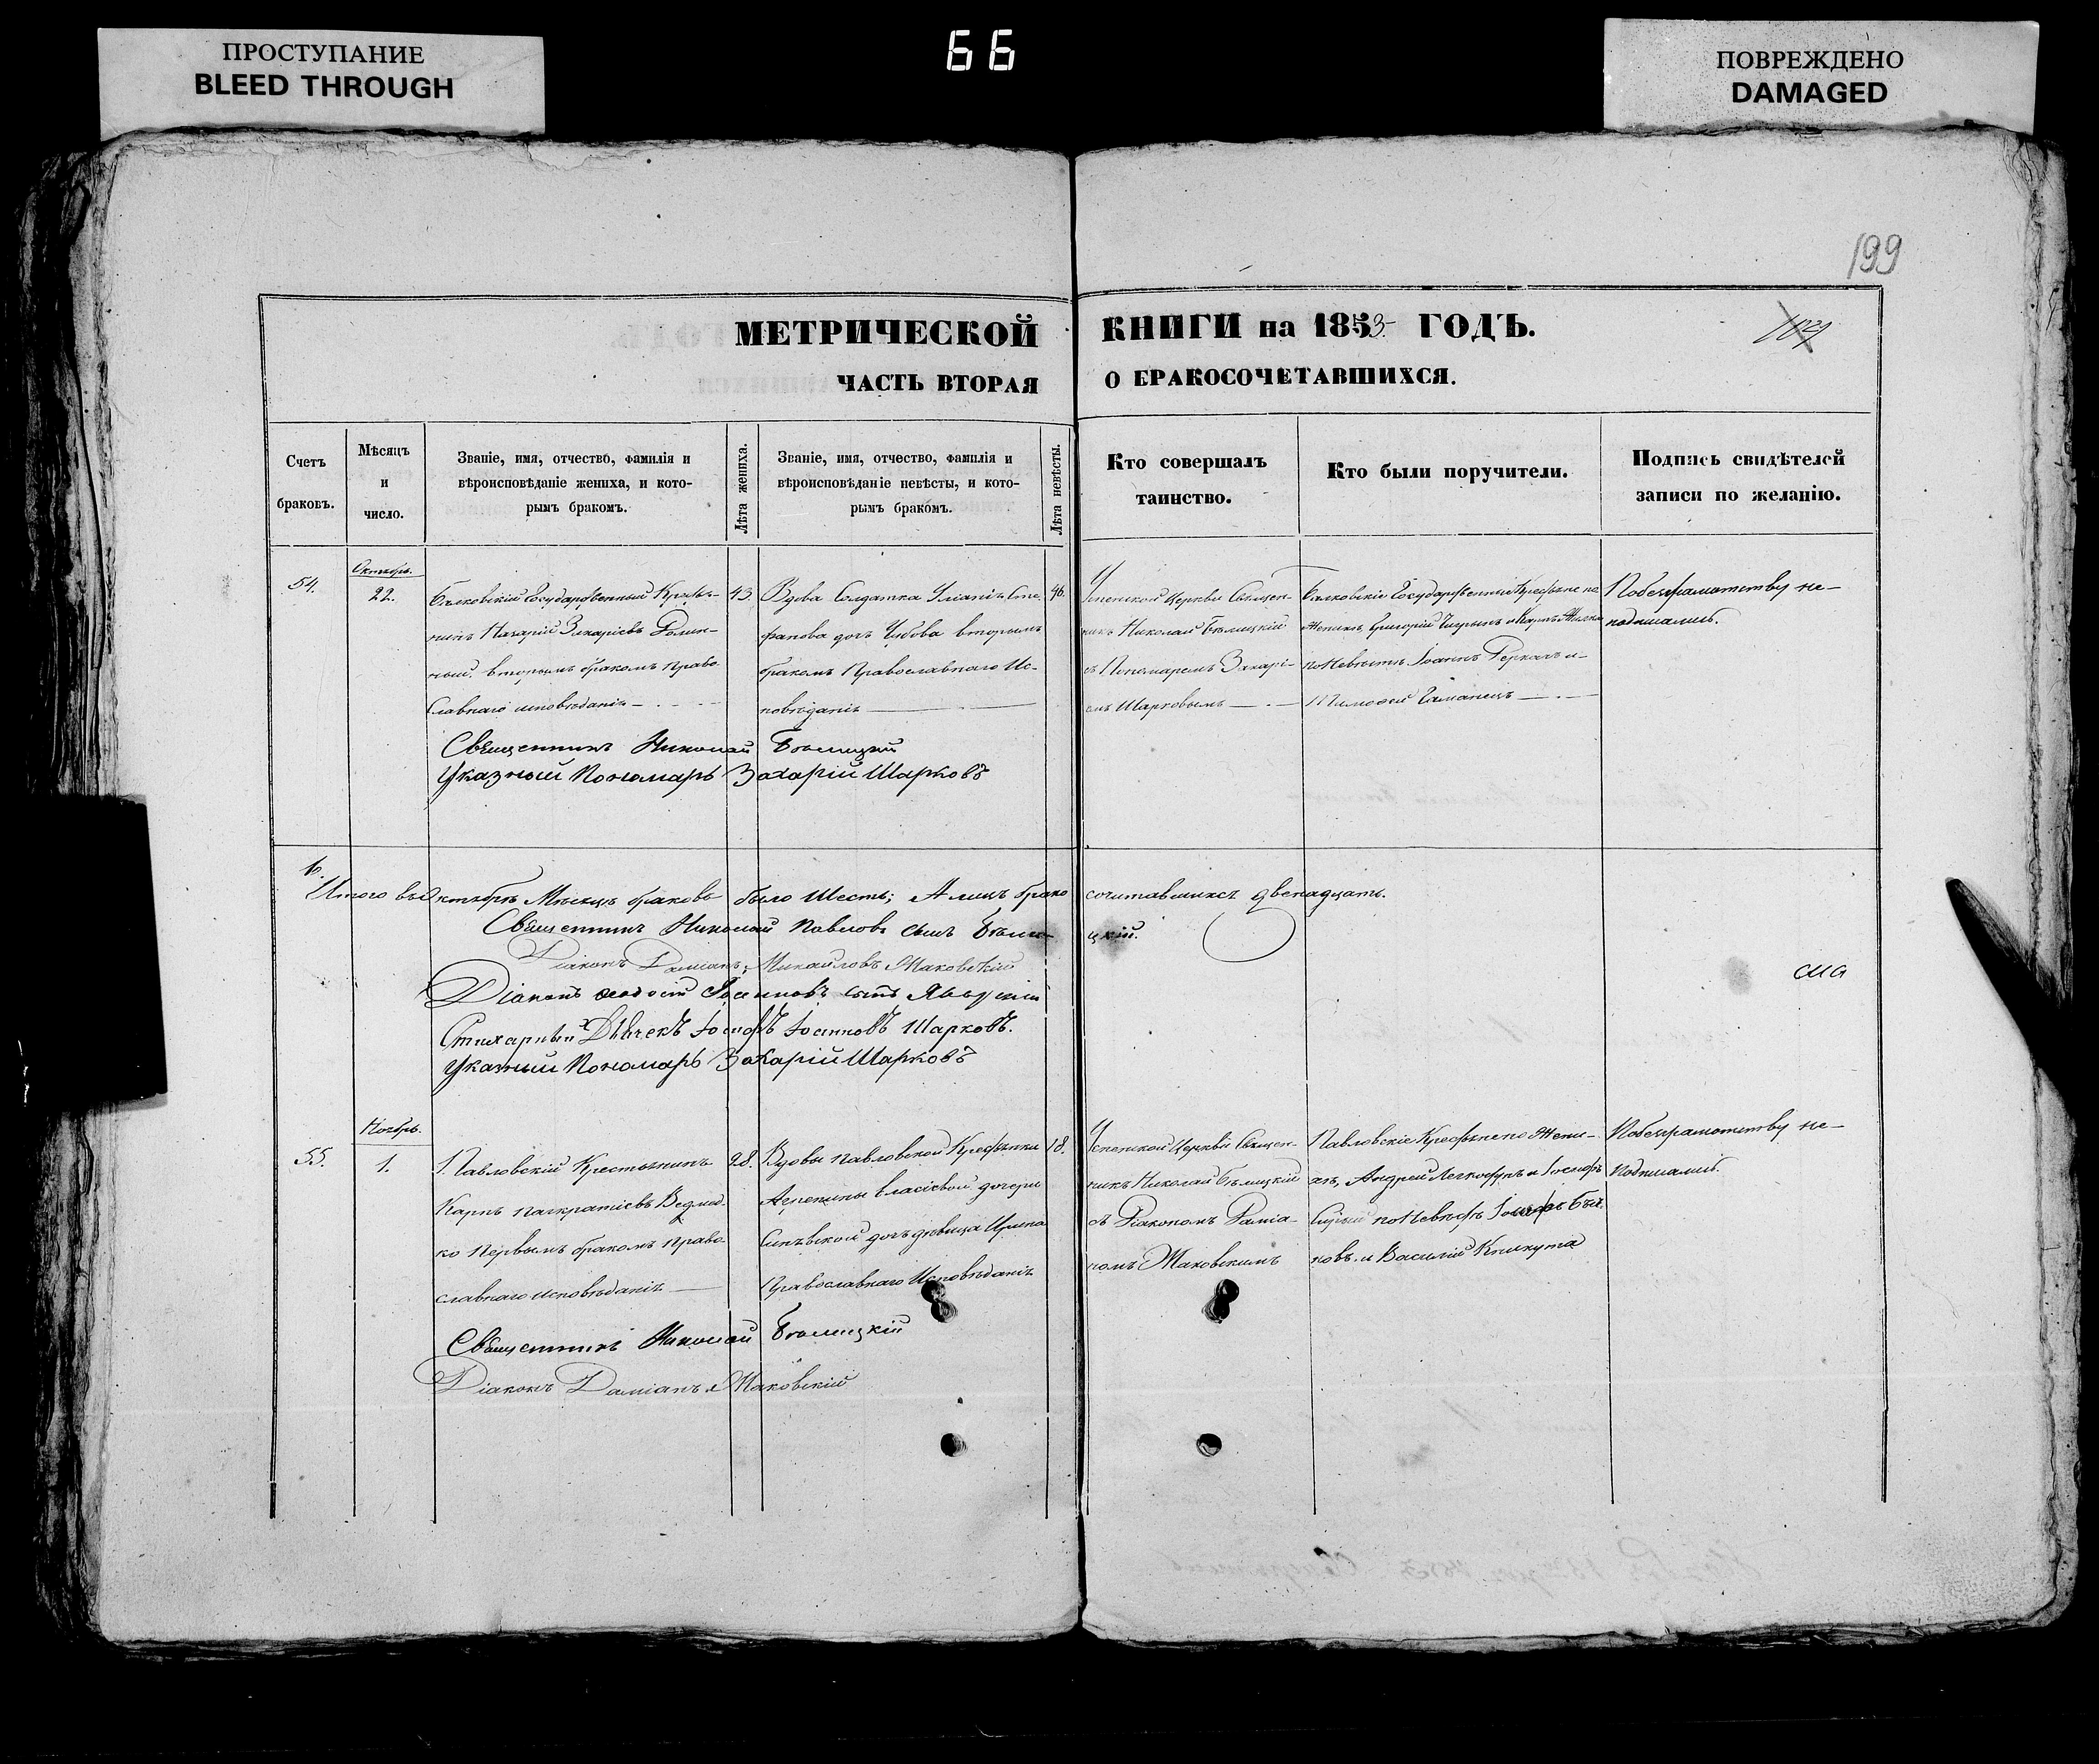 ПРОСТУПАНИЕ
BLEED THROUGH
66
ПОВРЕЖДЕНО
DAMAGED
199
МЕТРИЧЕСКОЙ КНИГИ на 1853 ГОДЪ.
ЧАСТЬ ВТОРАЯ О БРАКОСОЧЕТАВШИХСЯ.
Счетъ
браковъ.
Мѣсяцъ
и
число.
Званіе, имя, отчество, фамилія и
вѣроисповѣданіе жениха, и кото-
рымъ бракомъ.
Лѣта жениха.
Званіе, имя, отчество, фамилія и
вѣроисповѣданіе невѣсты, и кото-
рымъ бракомъ.
Лѣта невѣсты.
Кто совершалъ
таинство.
Кто были поручители.
Подпись свидѣтелей
записи по желанію.
54.
Октябрь.
22.
Балковскій Государственный Кресть-
янинъ Назарій Захаріевъ
вторымъ бракомъ право
славнаго исповѣданія
43.
Вдова Солдатка Уліанія Сте-
фанова дочь вторымъ
бракомъ Православнаго Ис-
повѣданія
46.
Успенской Церкви Священ-
никъ Николай Бѣлицкій
съ Пономаремъ Захарі-
емъ Шарковымъ
Балковскіе Государственные Крестьяне по
Женихѣ, Григорій и Карпъ
по Невѣстѣ Іоаннъ и
Тимофей Гаманецъ
Побезграмотству не-
подписались.
Священникъ Николай Бѣлицкій
Указный Пономарь Захарій Шарковъ
6.
Итого въ Октябрѣ Мѣсяцѣ браковъ было Шесть; А лицъ брако сочитавшихся двенадцать.
Священникъ Николай Павловъ сынъ Бѣли- цкій.
Діаконъ Даміанъ Михайловъ Маковскій
Діаконъ Феодосій сынъ
сма
Стихарный Дьячекъ Іосифъ Іоанновъ Шарковъ.
Указный Пономарь Захарій Шарковъ
55.
Ноябрь.
1.
Павловскій Крестьянинъ
Карпъ Панкратіевъ Ведмед-
ко Первымъ бракомъ право
славнаго исповѣданія
28.
Вдовы Павловской Крестьянки
Агрепины Власіевой дочери
дочь дѣвица Ирина
Православнаго Исповѣданія
18.
Успенской Церкви Священ-
никъ Николай Бѣлицкій
съ Діакономъ Даміа-
номъ Маковскимъ
Павловскіе Крестьяне по Жени-
хѣ, Андрей и Іосифъ
Сѣрый по Невѣстѣ Іосифъ Бѣл.
ковъ. и Василій Кикута
Побезграмотству не-
подписались.
Священникъ Николай Бѣлицкій
Діаконъ Даміанъ Маковскій